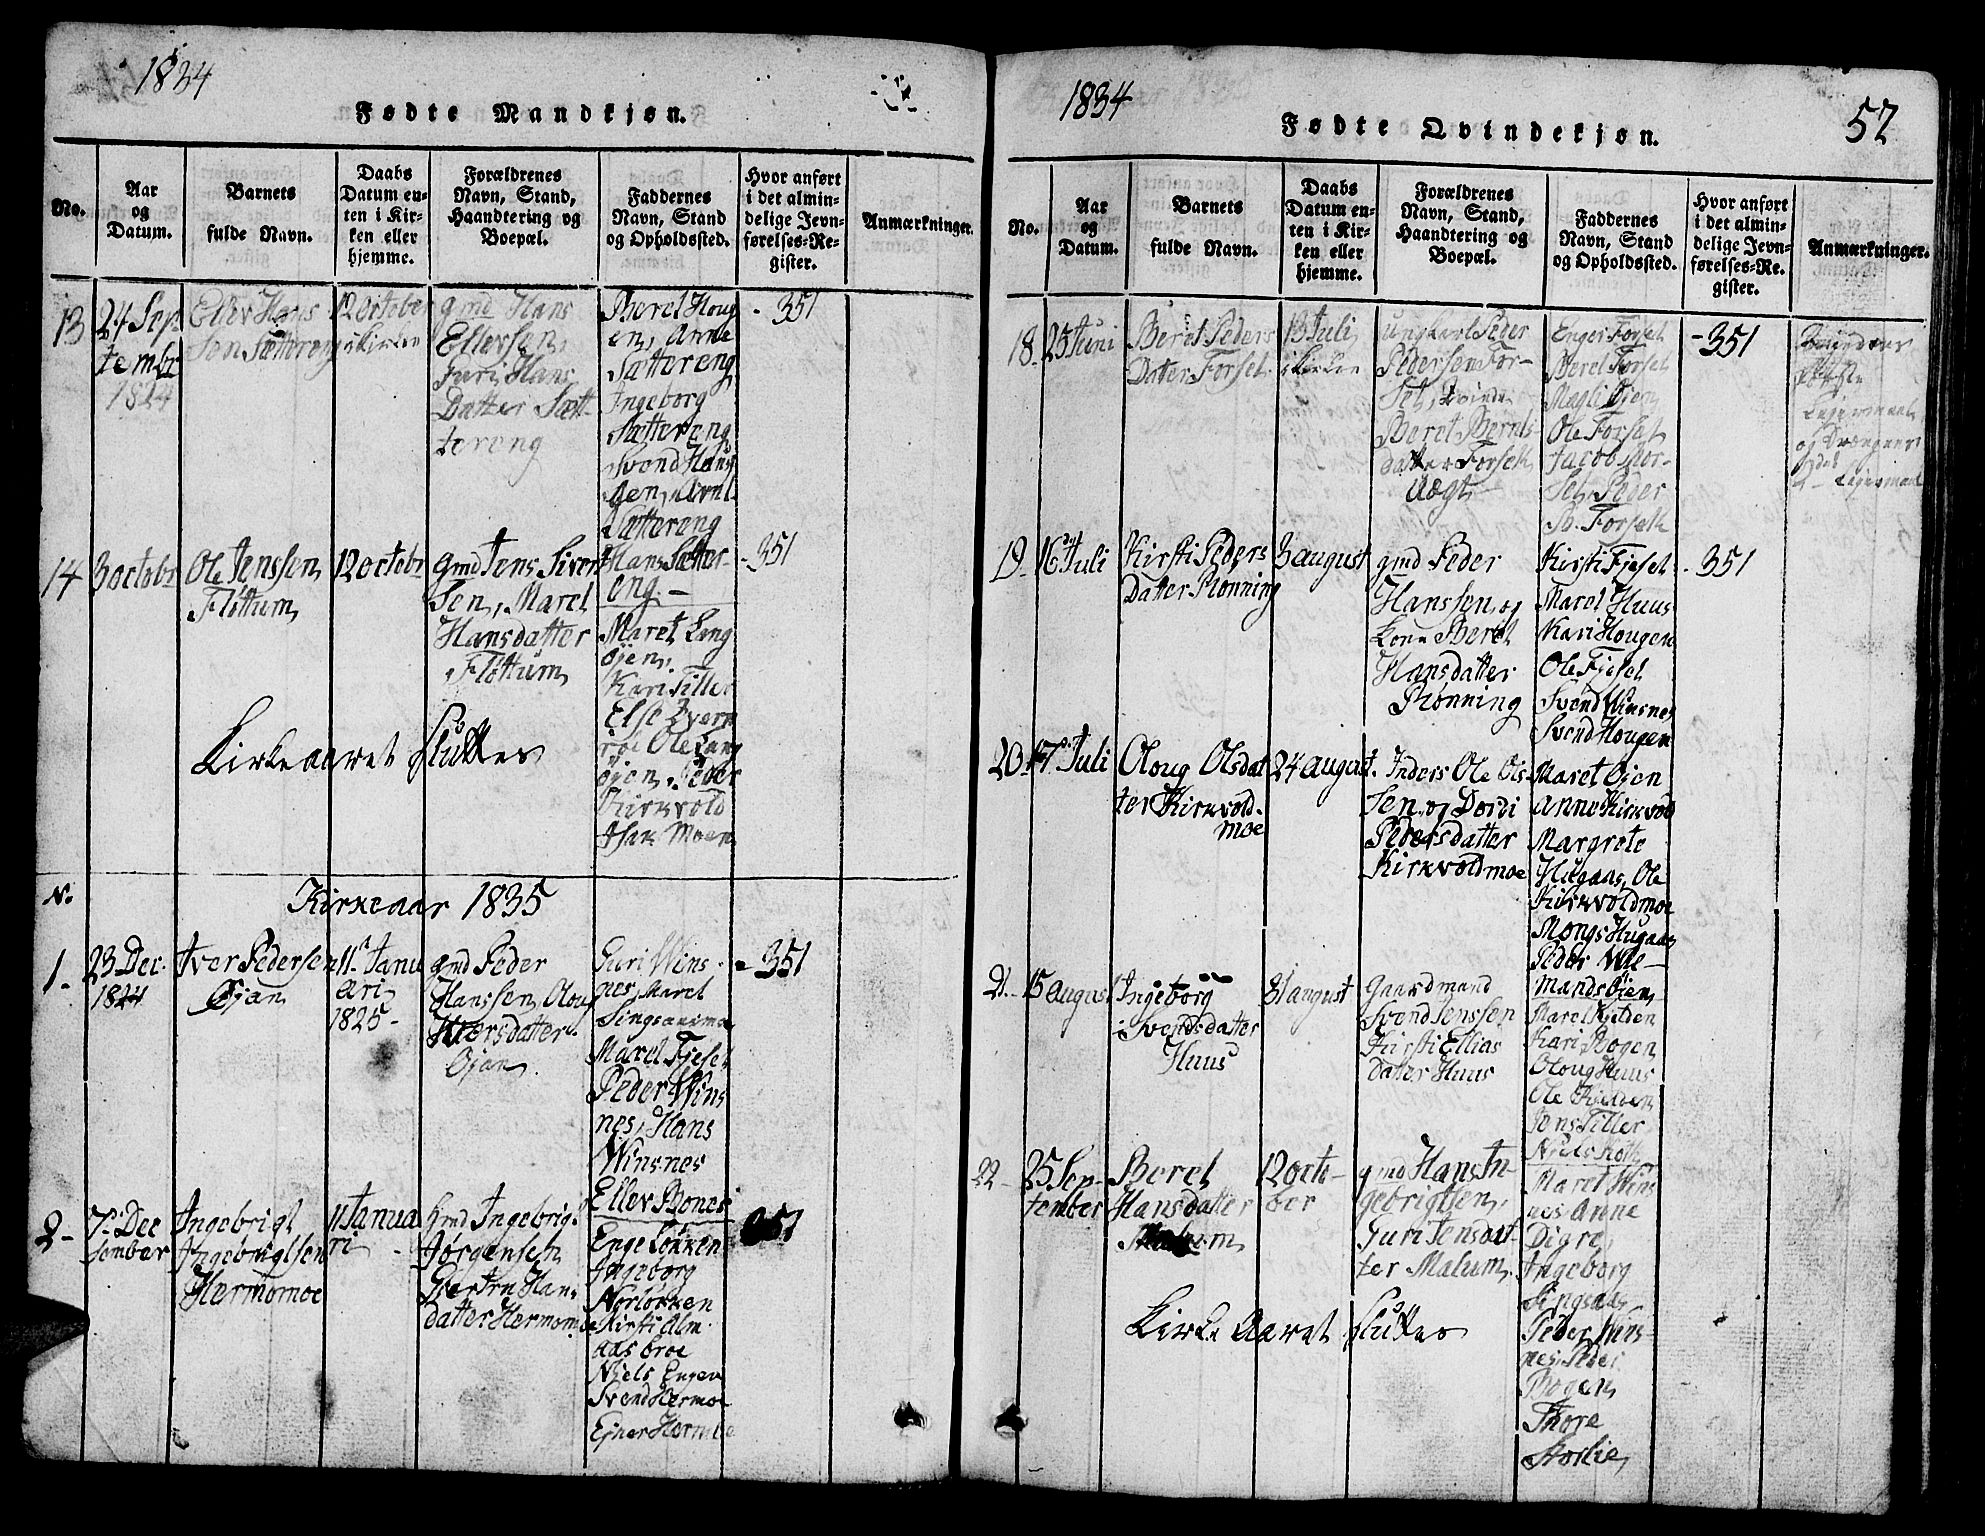 1834
Fødte Mandkjøn.
No.
Aar
og
Datum.
Barnets
fulde Navn.
Daabs
Datum en-
ten i Kir-
ken eller
hjemme.
Forældrenes
Navn, Stand,
Haandtering og
Boepæl.
Faddernes
Navn, Stand
og Opholdssted.
Hvor anført
i det almin-
delige Jevn-
førelses-Re-
gister.
Anmærkninger.
13
24 Sep
tembr
1824
Ellev Hans
Sen Sætereng
12 october
i Kirken
gmd Hans
Ellevsen,
Guri Hans
Datter Sæt-
tereng
Beret Houg
en, Anne
Sættereng
Ingeborg
Sættereng
Svend Haug
gen, Arnt
Sættereng
Hans Sætter-
eng. -
- 351
14
3 octobr
Ole Jenssen
Flöttum
12 octobr
gmd Jens Siver
Sen, Maret
Hansdatter
Flöttum
Maret Lang
öjen,
Kari Tiller
Else Kvern
röe Ole Lang
öjen, Peder
Kirkvold
Isak Moen
- 351
Kirkeaaret Sluttes
N.
Kirkeaar 1835
1.
23 Dec.
1824
Iver Pedersen
Øjan
11 Janu
ari
1825 -
gmd Peder
Hanssen, Oloug
Iversdatter
Ojan
Guri Wins
nes, Maret
Singsaasmoe
Maret Fjeset
Peder Wins
nes, Hans
Winsnes
Ellev Bones
- 351
2 -
7 Dec
sembær
Ingebrigt
Ingebrigtsen
Hermomoe
11 Janua
ri -
Hmd Ingebrigt
Jørgensen
Gjertru Han-
datter Hermom
Enge Løkken
Ingeborg
Norløkken
Kirsti Alm
aas broe
Niels Engen
Svend Hermoe
Ejner Hermoe
351
1834
57
Fødte Qvindekjøn.
No.
Aar
og
Datum.
Barnets
fulde Navn.
Daabs
Datum en-
ten i Kir-
ken eller
hjemme.
Forældrenes
Navn, Stand,
Haandtering og
Boepæl.
Faddernes
Navn, Stand
og Opholdssted.
Hvor anført
i det almin-
delige Jevn-
førelses-Re-
gister.
Anmærkninger.
18.
25 Juni
Beret Peders
Dater Forset
13 Juli
i Kirken
Ungkarl Peder
Pedersen For-
Set, Kvinde
Beret Bernts
datter Forset
Vægt
Enger Forset
Beret Forset
Magli Øien
Ole Forset
Jacob For-
Set, Peder
Forset
- 351
Leiermaal
og Drængens
Leiermaal
19 -
16 Juli
Kirsti Peders
Datter Rønning
3 august
gmd Peder
Hanssen og
Kone Beret
Hansdatter
Rønning
Kirsti Fjeset
Maret Huus
Kari Hougen
Ole Fjeset
Svend Winsnes
Svend Hougen
- 351
20
17 Juli
Oloug Olsdat
ter Kirkvold-
moe
24 august
Inders Ole Ols-
Sen og Dordi
Pedersdatter
Kirkvoldmoe
Maret Ojen
Anne Kirkvold
Margrete
Hugaas, Ole
Kirkvoldmoe
Mons Hugaas
Peder Wie-
mandsöjen
21.
15 august
Ingeborg
Svendsdatter
Huus
31 august
Gaardmand
Svend Jenssen
Kirsti Ellias
dater Huus
Maret Kjelden
Kari Bogen
Oloug Huus
Ole Kjelden
Jens Tiller
Niels Kotte
22 -
25 Sep-
tember
Beret
Hansdatter
Malum
12 octo-
ber
gmd Hans In-
gebrigtsen,
Guri Jensdat-
ter Malum,
Maret Wins
nes Anne
Digre,
Ingeborg
Singsaas
Peder Wins-
nes, Peder
Bogen
Thore
Storlie
Kirke Aaret Sluttes